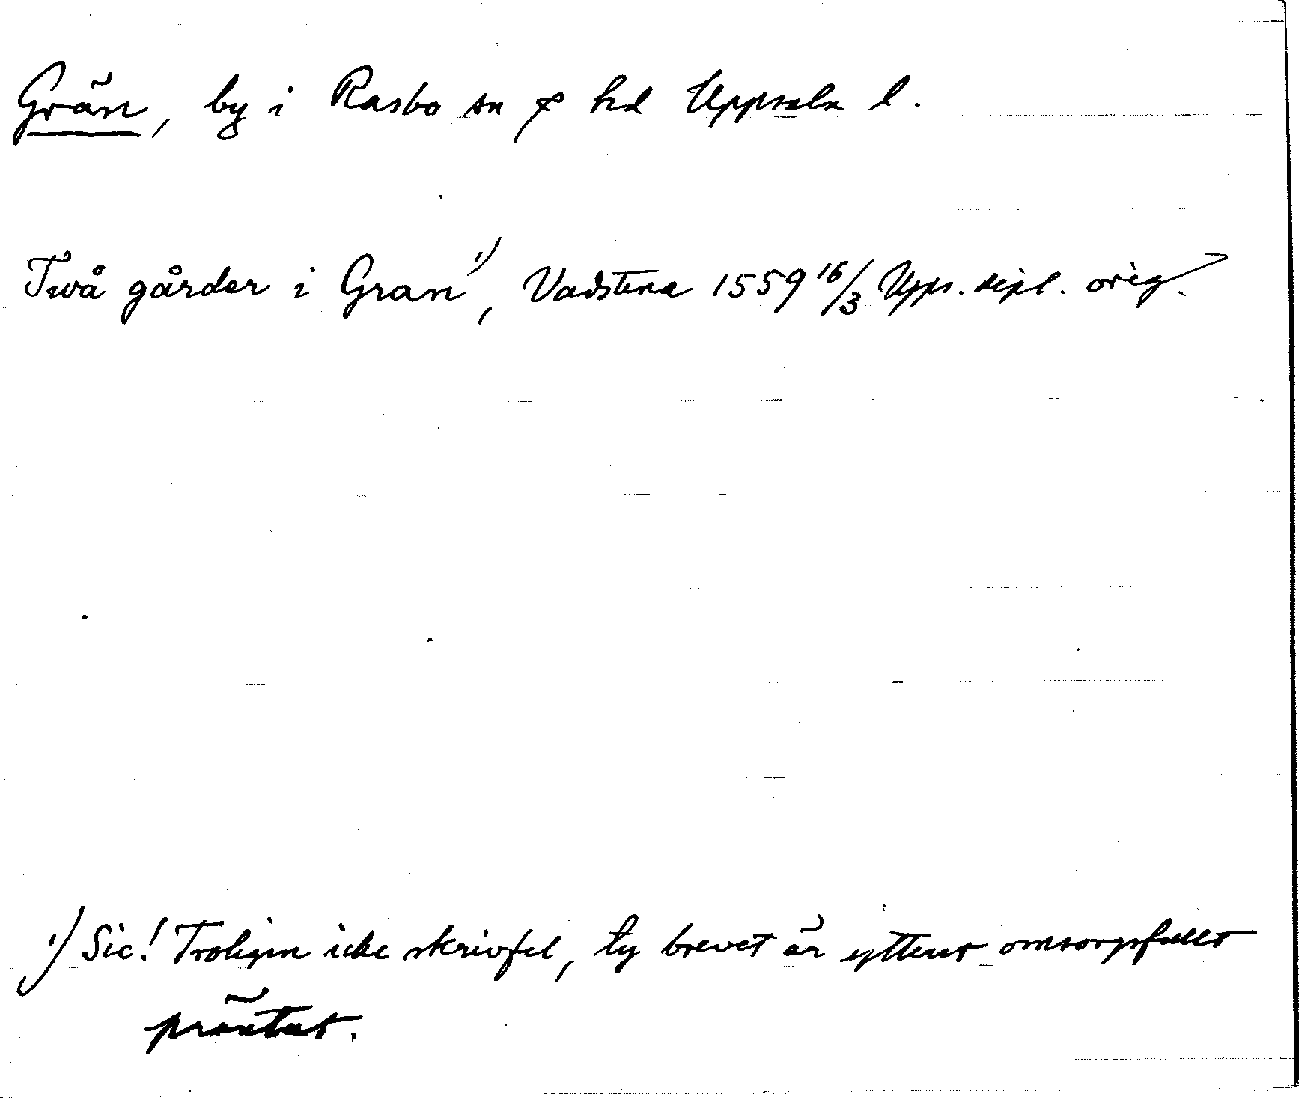 Grän, by i Rasbo sn o hd Uppsala l.
Twå gårder i Gran¹⁾, Vadstena 1559 16/3 Upps. dipl. orig.
¹⁾ Sic! Troligen icke skrivfel, ty brevet är ytterst omsorgsfullt
präntat.